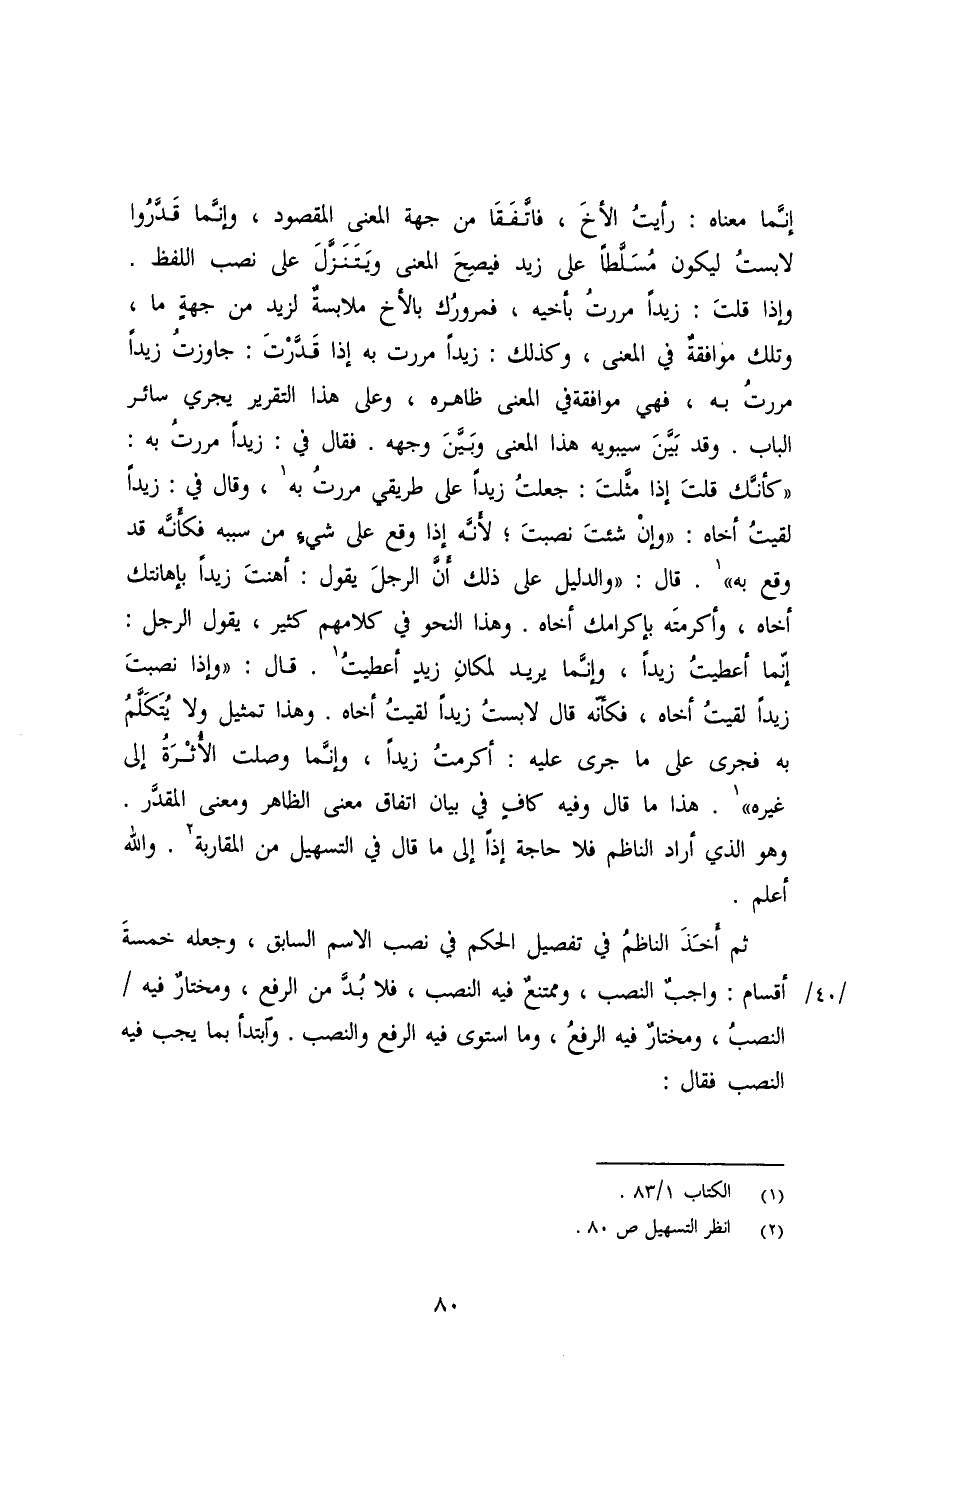 إنَّما معناه : رأيتُ الأخَ ، فاتَّفَقَا من جهة المعنى المقصود ، وإنَّما قَدَّرُوا
لابستُ ليكون مُسَلَّطاً على زيد فيصِحَ المعنى ويَتَنَزَّلَ على نصب اللفظ .
وإذا قلتَ : زيداً مررتُ بأخيه ، فمرورُك بالأخ ملابسةٌ لزيد من جهةٍ ما ،
وتلك موٰافقةٌ في المعنى ، وكذلك : زيداً مررت به إذا قَدَّرْتَ : جاوزتُ زيداً
مررتُ به ، فهي موافقةفي المعنى ظاهره ، وعلى هذا التقرير يجري سائر
الباب . وقد بَيَّنَ سيبويه هذا المعنى وبَيَّنَ وجهه . فقال في : زيداً مررتُ به :
«كأنَّك قلتَ إذا مثَّلتَ : جعلتُ زيداً على طريقي مررتُ به١ ، وقال في : زيداً
لقيتُ أخاه : «وإنْ شئتَ نصبتَ ؛ لأنَّه إذا وقع على شيءٍ من سببه فكأَنَّه قد
وقع به»١ . قال : «والدليل على ذلك أَنَّ الرجلَ يقول : أهنتَ زيداً بإهانتك
أخاه ، وأكرمتَه بإكرامك أخاه . وهذا النحو في كلامهم كثير ، يقول الرجل :
إنّما أعطيتُ زيداً ، وإنَّما يريد لمكانِ زيدٍ أعطيتُ١ . قال : «وإذا نصبتَ
زيداً لقيتُ أخاه ، فكأنّه قال لابستُ زيداً لقيتُ أخاه . وهذا تمثيل ولا يُتَكَلَّمُ
به فجرى على ما جرى عليه : أكرمتُ زيداً ، وإنَّما وصلت الأُثْرَةُ إلى
غيره»١ . هذا ما قال وفيه كافٍ في بيان اتفاق معنى الظاهر ومعنى المقدَّر .
وهو الذي أراد الناظم فلا حاجة إذاً إلى ما قال في التسهيل من المقاربة٢ . والله
أعلم .
ثم أَخَذَ الناظمُ في تفصيل الحكم في نصب الاسم السابق ، وجعله خمسةَ
/٤٠/ أقسام : واجبٌ النصب ، وممتنعٌ فيه النصب ، فلا بُدَّ من الرفع ، ومختارٌ فيه /
النصبُ ، ومختارٌ فيه الرفعُ ، وما استوى فيه الرفع والنصب . وآبتدأ بما يجب فيه
النصب فقال :
(١) الكتاب ٨٣/١ .
(٢) انظر التسهيل ص ٨٠ .
٨٠